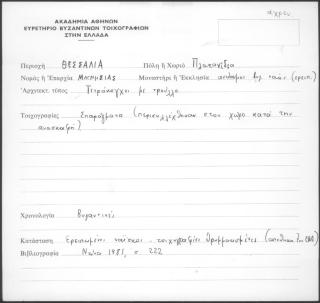 ΑΚΑΔΗΜΙΑ ΑΘΗΝΩΝ
ΕΥΡΕΤΗΡΙΟ ΒΥΖΑΝΤΙΝΩΝ ΤΟΙΧΟΓΡΑΦΙΩΝ
ΣΤΗΝ ΕΛΛΑΔΑ
Περιοχή ΘΕΣΣΑΛΙΑ Πόλη ή Χωριό Πλατανίδια
Νομός ή Ἐπαρχία ΜΑΓΝΗΣΙΑΣ Μοναστήρι ή Ἐκκλησία
Ἀρχιτεκτ. τύπος Τετράκογχοι με τρούλλο
Τοιχογραφίες Σπαράγματα (περισυλλέχθηκαν στον χώρο κατά την
ανασκαφή)
Χρονολογία Βυζαντινές
Κατάσταση Ερειπωμένη τοιχογραφίες θρυμματισμένες
Βιβλιογραφία 1981, σ. 222